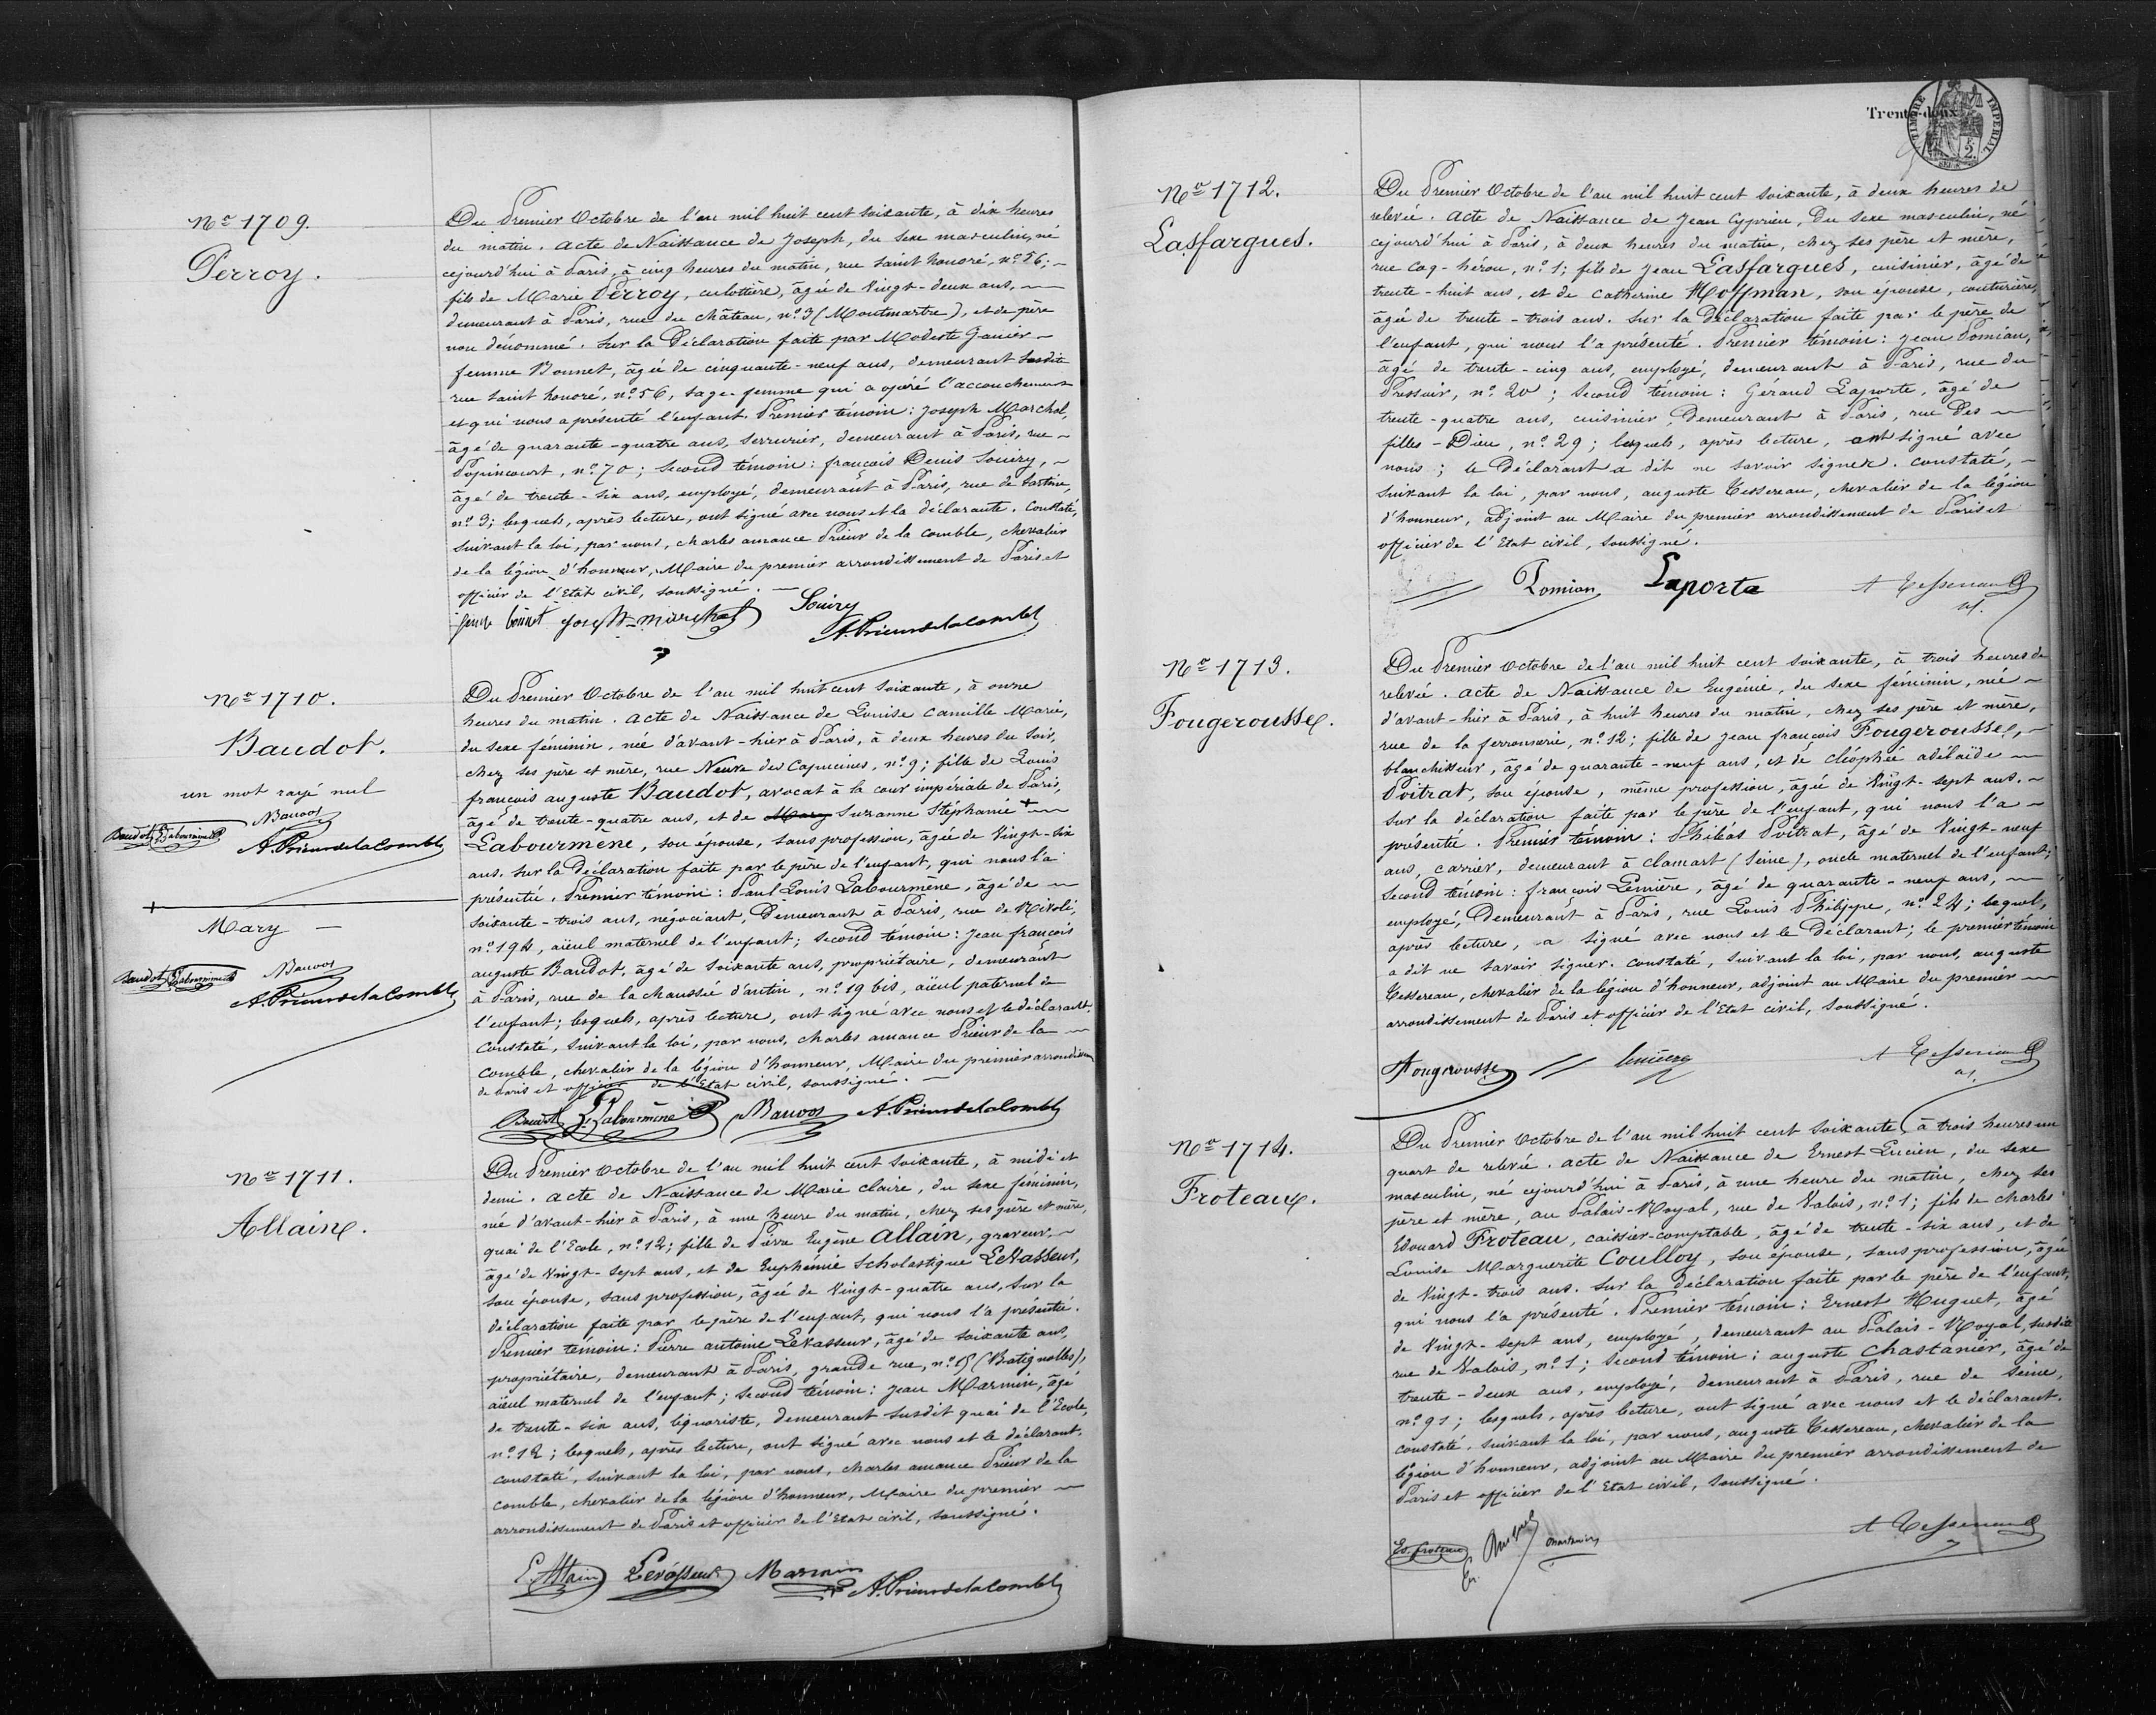 Nº 1709.
Perroy.
Du Premier Octobre de l'an mil huit cent soixante, à dix heures
du matin. Acte de Naissance de Joseph, du sexe masculin, né
cejourd'hui à Paris, à cinq heures du matin, rue Saint honoré, nº 56;
fils de Marie Perroy, culottière, âgée de Vingt-deux ans,
demeurant à Paris, rue du Château, nº 3 (Montmartre), et de père
non dénommé. Sur la Déclaration faite par Modeste Ganier
femme Bonnet, âgée de cinquante-neuf ans, demeurant susdite
rue Saint honoré, nº 56, sage-femme qui a opéré l'accouchement
et qui nous a présenté l'enfant. Premier témoin: Joseph Marchal,
âgé de quarante-quatre ans, serrurier, demeurant à Paris, rue
Popincourt, nº 70; second témoin: françois Denis Souiry,
âgé de trente-six ans, employé, demeurant à Paris, rue de Sartine,
nº 3; lesquels, après lecture, ont signé avec nous et la déclarante. Constaté,
suivant la loi, par nous, charles amance Prieur de la comble, chevalier
de la légion d'honneur, Maire du premier arrondissement de Paris et
officier de l'Etat civil, soussigné.
Souiry
A. Prieur de la Comble
Nº 1710.
Baudot.
un mot rayé nul
Baudot
A. Prieur de la Comble
Mary
Baudot
A. Prieur de la Comble
Du Premier Octobre de l'an mil huit cent soixante, à onze
heures du matin. Acte de Naissance de Louise Camille Marie,
du sexe féminin, née d'avant-hier à Paris, à deux heures du soir,
chez ses père et mère, rue Neuve des Capucines, nº 9; fille de Louis
françois auguste Baudot, avocat à la cour impériale de Paris,
âgé de trente-quatre ans, et de Mary Suzanne Stéphanie +
Labourmène, son épouse, sans profession, âgée de Vingt-six
ans. Sur la Déclaration faite par le père de l'enfant, qui nous l'a
présentée. Premier témoin: Paul Louis Labourmène, âgé de
soixante-trois ans, négociant, Demeurant à Paris, rue de Rivoli,
nº 194, aïeul maternel de l'enfant; second témoin: Jean françois
auguste Baudot, âgé de soixante ans, propriétaire, demeurant
à Paris, rue de la chaussée d'antin, nº 19 bis, aïeul paternel de
l'enfant; lesquels, après lecture, ont signé avec nous et le déclarant.
Constaté, suivant la loi, par nous, charles amance Prieur de la
comble, chevalier de la légion d'honneur, Maire du premier arrondissem
de Paris et officier de l'Etat civil, soussigné.
Baudot Labourmène A. Prieur de la Comble
Nº 1711.
Allain.
Du Premier Octobre de l'an mil huit cent soixante, à midi et
demi. Acte de Naissance de Marie Claire, du sexe féminin,
née d'avant-hier à Paris, à une heure du matin, chez ses père et mère,
quai de l'Ecole, nº 12; fille de Pierre Eugène Allain, graveur,
âgé de Vingt-sept ans, et de Euphémie Scholastique LeVasseur,
son épouse, sans profession, âgée de Vingt-quatre ans. Sur la
déclaration faite par le père de l'enfant, qui nous l'a présentée.
Premier témoin: Pierre antoine LeVasseur, âgé de soixante ans,
propriétaire, demeurant à Paris, grande rue, nº 8 (Batignolles),
aïeul maternel de l'enfant; second témoin: Jean Marmin, âgé
de trente-six ans, liquoriste, demeurant susdit quai de l'Ecole,
nº 12; lesquels, après lecture, ont signé avec nous et le déclarant.
constaté, suivant la loi, par nous, charles amance Prieur de la
comble, chevalier de la légion d'honneur, Maire du premier
arrondissement de Paris et officier de l'Etat civil, soussigné.
E. Allain Levasseur Marmin A. Prieur de la Comble
Trente-deux
TIMBRE IMPERIAL
2.
Nº 1712.
Lasfargues.
Du Premier Octobre de l'an mil huit cent soixante, à deux heures de
relevée. Acte de Naissance de Jean Cyprien, Du sexe masculin, né
cejourd'hui à Paris, à deux heures du matin, chez ses père et mère,
rue coq-héron, nº 1; fils de Jean Lasfargues, cuisinier, âgé de
trente-huit ans, et de Catherine Hoffman, son épouse, couturière,
âgée de trente-trois ans. Sur la Déclaration faite par le père de
l'enfant, qui nous l'a présenté. Premier témoin: Jean Pomian,
âgé de trente-cinq ans, employé, demeurant à Paris, rue du
Pressoir, nº 20; second témoin: Géraud Laporte, âgé de
trente-quatre ans, cuisinier, Demeurant à Paris, rue des
filles-Dieu, nº 29; lesquels, après lecture, ont signé avec
nous; le Déclarant a dit ne savoir signer. constaté,
suivant la loi, par nous, auguste Tessereau, chevalier de la légion
d'honneur, adjoint au Maire du premier arrondissement de Paris et
officier de l'Etat civil, soussigné.
Pomian Laporte A Tessereau
Nº 1713.
Fougerousse.
Du Premier Octobre de l'an mil huit cent soixante, à trois heures de
relevée. Acte de Naissance de Eugénie, du sexe féminin, née
d'avant-hier à Paris, à huit heures du matin, chez ses père et mère,
rue de la ferronnerie, nº 12; fille de Jean françois Fougerousse,
blanchisseur, âgé de quarante-neuf ans, et de cléophée adélaïde
Poitrat, son épouse, même profession, âgée de Vingt-sept ans.
Sur la déclaration faite par le père de l'enfant, qui nous l'a
présentée. Premier témoin: Philéas Poitrat, âgé de Vingt-neuf
ans, carrier, demeurant à clamart (Seine), oncle maternel de l'enfant;
second témoin: françois Lemière, âgé de quarante-neuf ans,
employé, Demeurant à Paris, rue Louis Philippe, nº 24; lequel,
après lecture, a signé avec nous et le Déclarant; le premier témoin
a dit ne savoir signer. constaté, suivant la loi, par nous, auguste
Tessereau, chevalier de la légion d'honneur, adjoint au Maire du premier
arrondissement de Paris et officier de l'Etat civil, soussigné.
Fougerousse A Tessereau
Nº 1714.
Froteau.
Du Premier Octobre de l'an mil huit cent soixante, à trois heures un
quart de relevée. Acte de Naissance de Ernest Lucien, du sexe
masculin, né cejourd'hui à Paris, à une heure du matin, chez ses
père et mère, au Palais-Royal, rue de Valois, nº 1; fils de charles
Edouard Froteau, caissier-comptable, âgé de trente-six ans, et de
Louise Marguerite Coulloy, son épouse, sans profession, âgée
de Vingt-trois ans. Sur la Déclaration faite par le père de l'enfant,
qui nous l'a présenté. Premier témoin: Ernest Huguet, âgé
de Vingt-sept ans, employé, demeurant au Palais-Royal, susdite
rue de Valois, nº 1; second témoin: auguste Chastanier, âgé de
trente-deux ans, employé, demeurant à Paris, rue de Seine,
nº 91; lesquels, après lecture, ont signé avec nous et le déclarant.
constaté, suivant la loi, par nous, auguste Tessereau, chevalier de la
légion d'honneur, adjoint au Maire du premier arrondissement de
Paris et officier de l'Etat civil, soussigné.
Ed. froteau A Tessereau